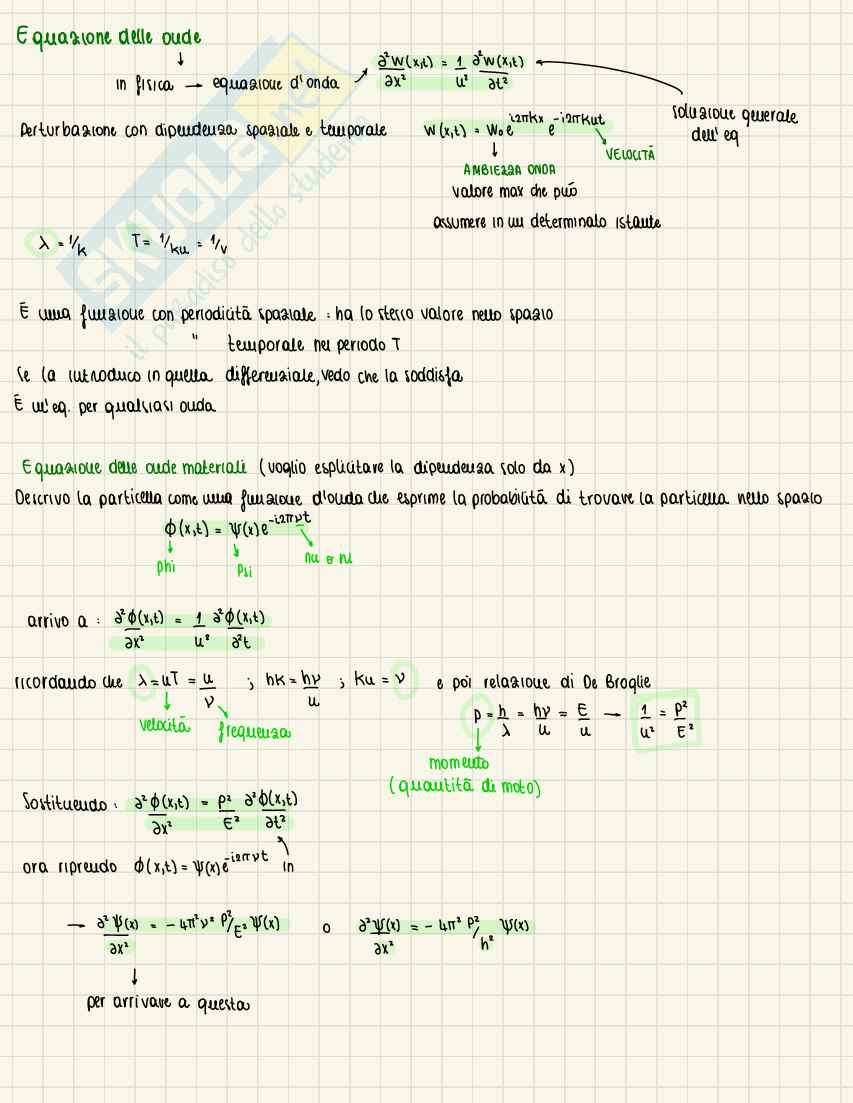 Equazione delle onde
in fisica → equazione d'onda → ∂²W(x,t)/∂x² = 1/u² ∂²W(x,t)/∂t²
soluzione generale
dell'eq
Perturbazione con dipendenza spaziale e temporale W(x,t) = W₀ e^(i2πkx) e^(-i2πkut)
VELOCITÀ
AMPIEZZA ONDA
valore max che può
assumere in un determinato istante
λ = 1/k T = 1/ku = 1/ν
È una funzione con periodicità spaziale : ha lo stesso valore nello spazio
" temporale nel periodo T
Se la introduco in quella differenziale, vedo che la soddisfa
È un'eq. per qualsiasi onda
Equazione delle onde materiali (voglio esplicitare la dipendenza solo da x)
Descrivo la particella come una funzione d'onda che esprime la probabilità di trovare la particella nello spazio
ϕ(x,t) = ψ(x) e^(-i2πνt)
phi psi nu o ni
arrivo a : ∂²ϕ(x,t)/∂x² = 1/u² ∂²ϕ(x,t)/∂²t
ricordando che λ = uT = u/ν ; hk = hν/u ; ku = ν e poi relazione di De Broglie
velocità frequenza
p = h/λ = hν/u = E/u → 1/u² = p²/E²
momento
(quantità di moto)
Sostituendo : ∂²ϕ(x,t)/∂x² = p²/E² ∂²ϕ(x,t)/∂t²
ora riprendo ϕ(x,t) = ψ(x) e^(-i2πνt) in
→ ∂²ψ(x)/∂x² = -4π²ν² p²/E² ψ(x) o ∂²ψ(x)/∂x² = -4π² p²/h² ψ(x)
per arrivare a questa
SKUOLA.net
il paradiso dello studente